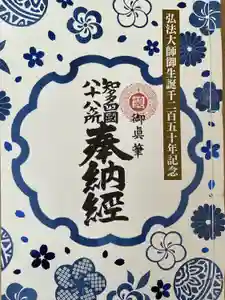 弘法大師御生誕千二百五十年記念
御眞筆
知多四國
八十八ヶ所
奉納經